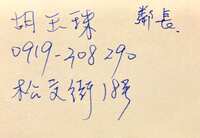 胡玉珠 鄰長
0919-308290
松文街18号